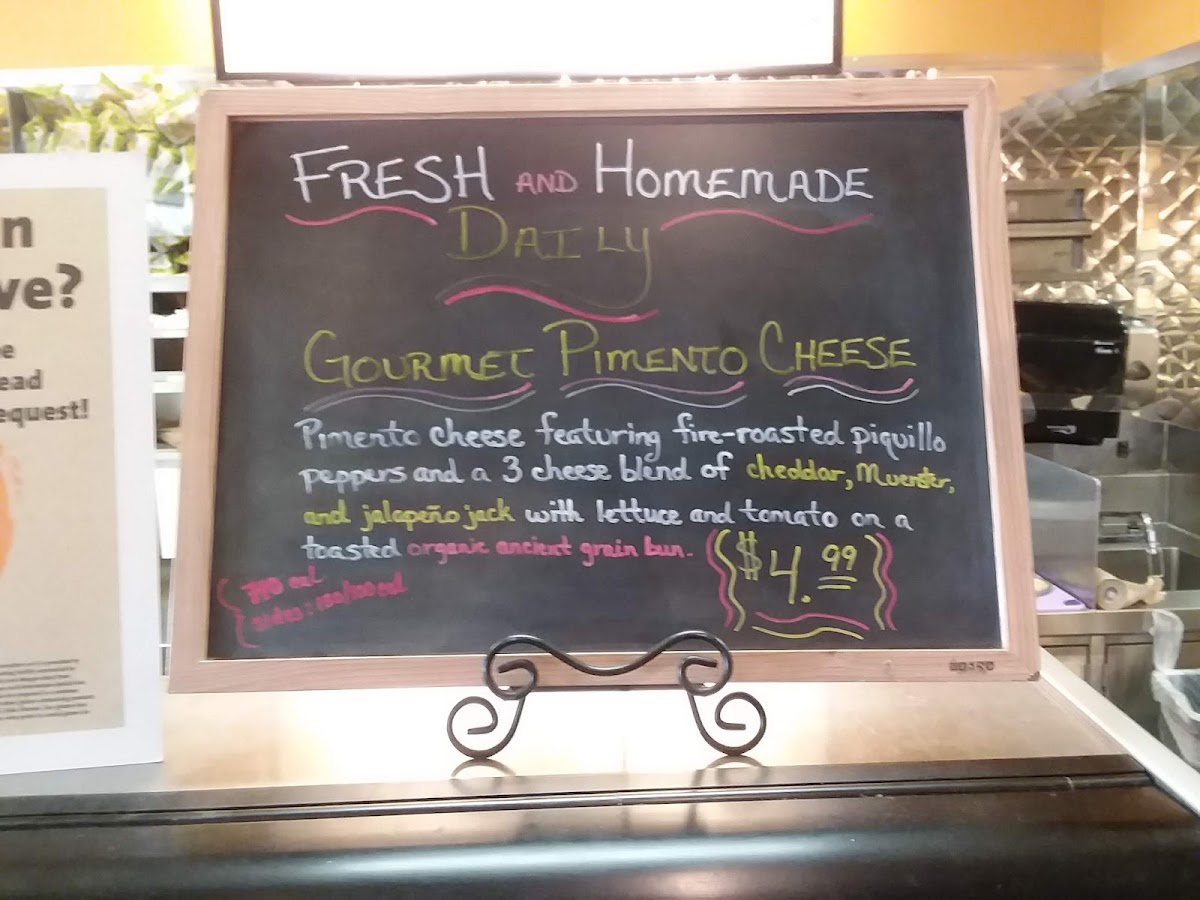 n
ve?
e
ead
equest!
FRESH AND HOMEMADE
DAILY
GOURMET PIMENTO CHEESE
Pimento cheese featuring fire-roasted piquillo
peppers and a 3 cheese blend of cheddar, Muenster,
and jalapeño jack with lettuce and tomato on a
toasted organic ancient grain bun.
$4.99
cal
sides: cal